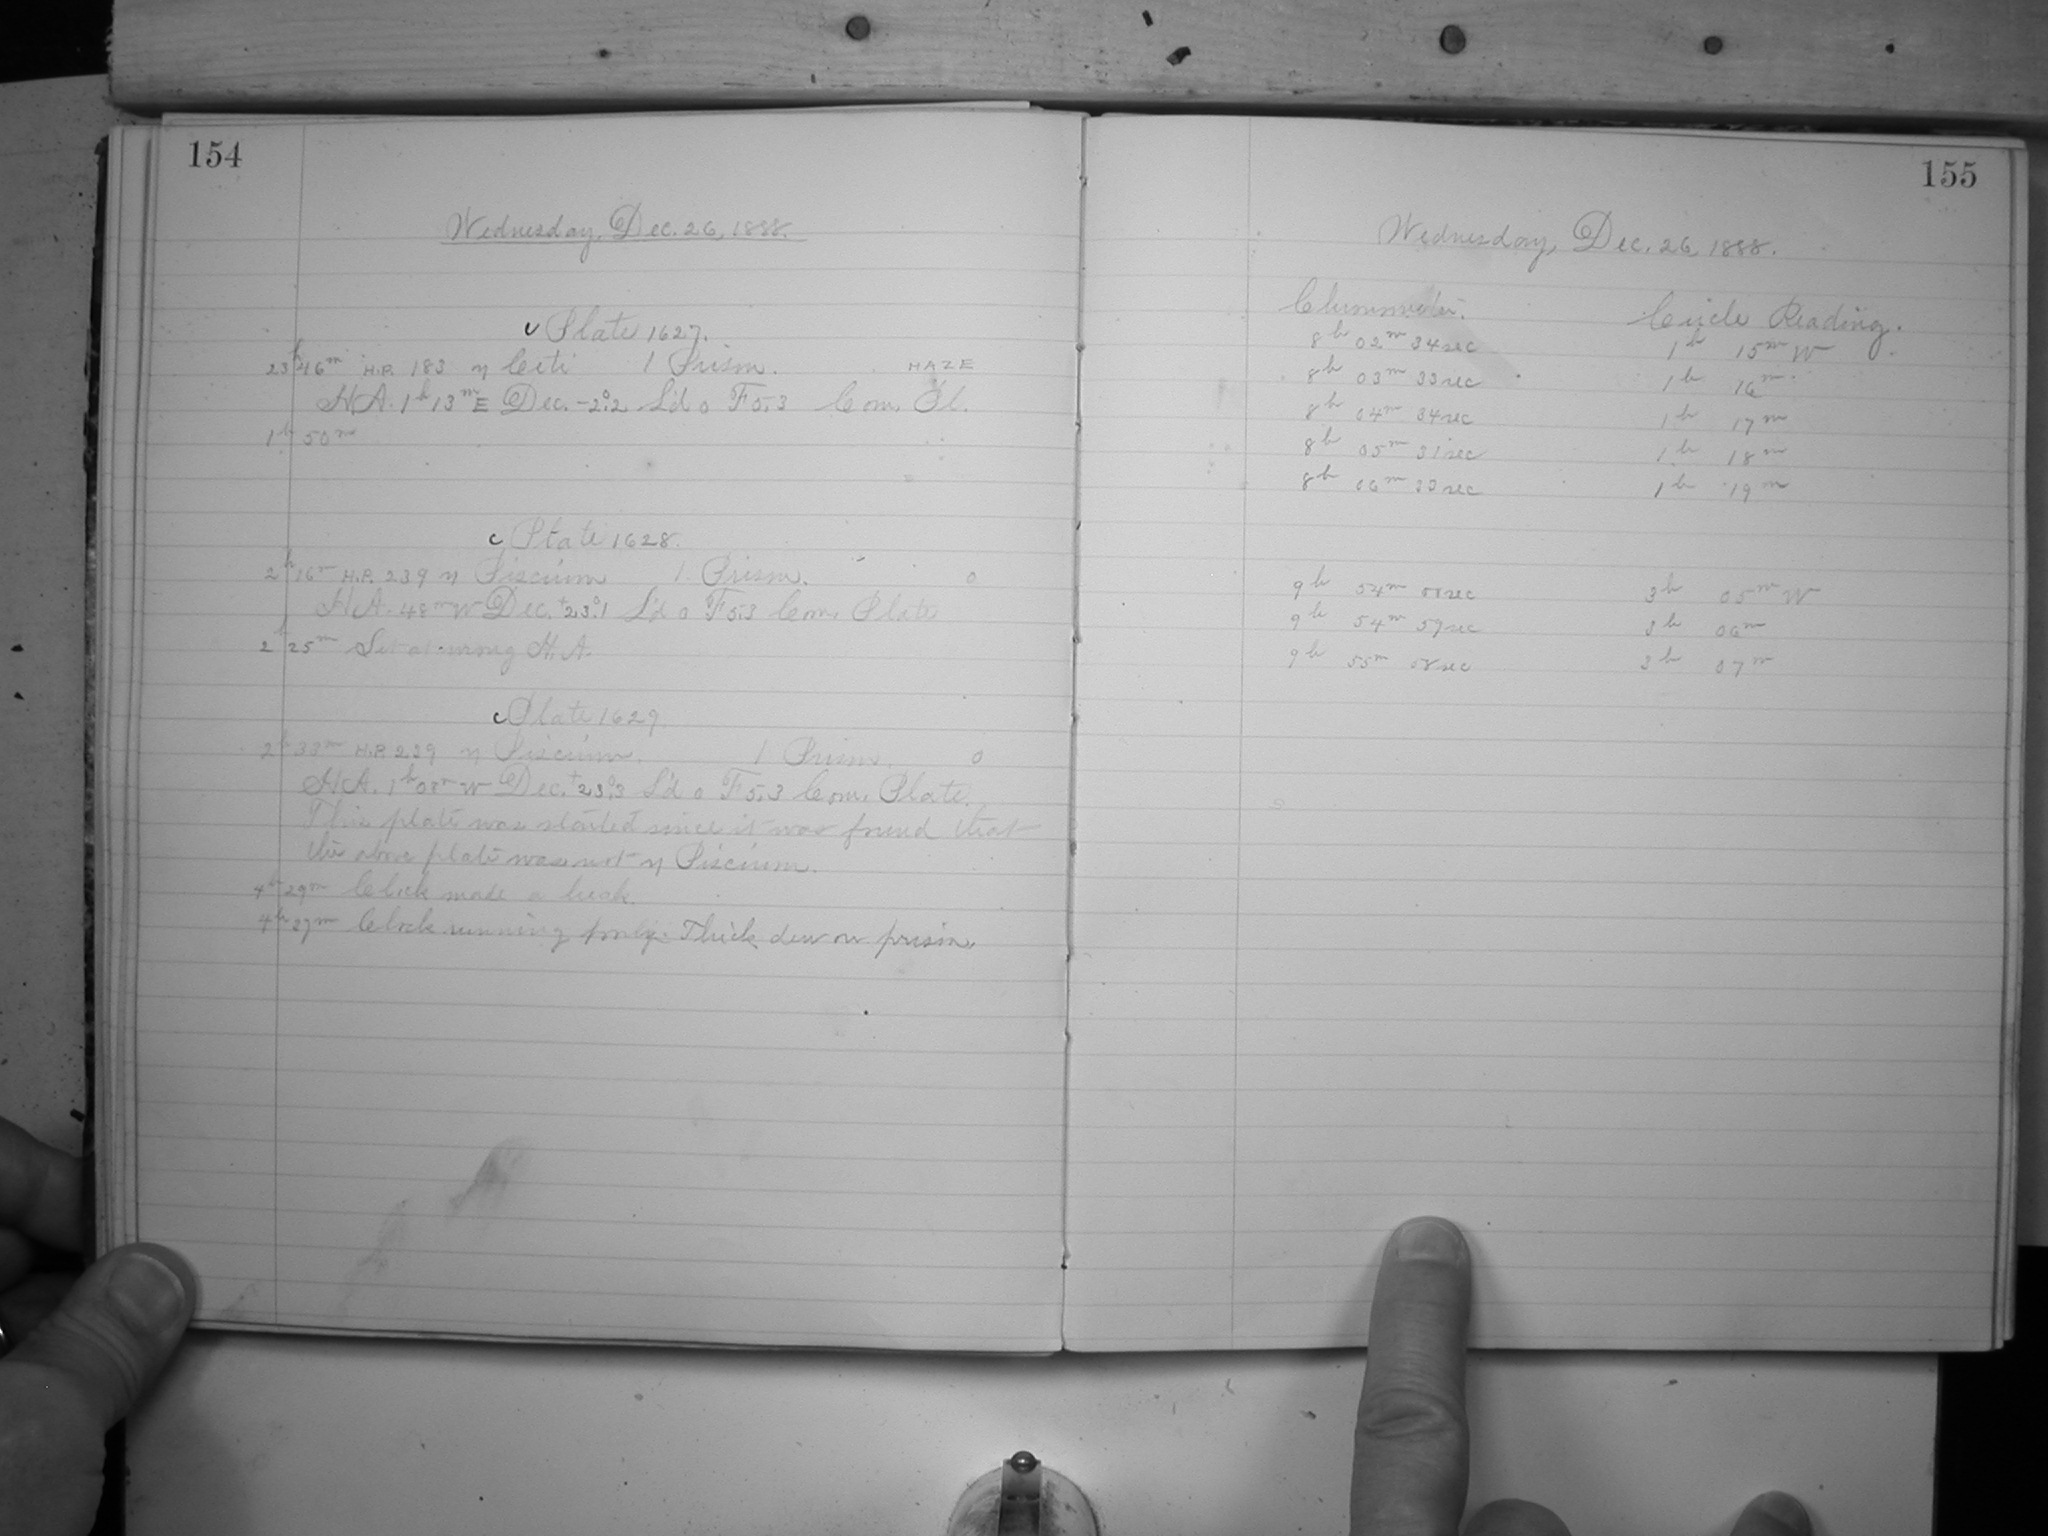 154
Wednesday, Dec. 26, 1888.
c Plate 1627.
23h 46m H.P. 183 η Ceti 1 Prism. HAZE
H.A. 1h 13m E Dec. -2°.2 L'd o F 5.3 Com. Pl.
1h 50m
c Plate 1628.
2h 16m H.P. 239 η Piscium 1 Prism. 0
H.A. 48m W Dec. +23°.1 L'd o F 5.3 Com. Plate
2h 25m Set at wrong H.A.
c Plate 1629
2h 33m H.P. 239 η Piscium. 1 Prism. 0
H.A. 1h 08m W Dec. +23°.3 L'd o F 5.3 Com. Plate.
This plate was started since it was found that
the above plate was not η Piscium.
4h 29m Clock made a break.
4h 37m Clock running poorly. Thick dew on prism.
155
Wednesday, Dec. 26, 1888.
Chronometer. Circle Reading.
8h 02m 34sec 1h 15m W
8h 03m 33sec 1h 16m
8h 04m 34sec 1h 17m
8h 05m 31sec 1h 18m
8h 06m 33sec 1h 19m
9h 54m sec 3h 05m W
9h 54m 59sec 3h 06m
9h 55m 58sec 3h 07m